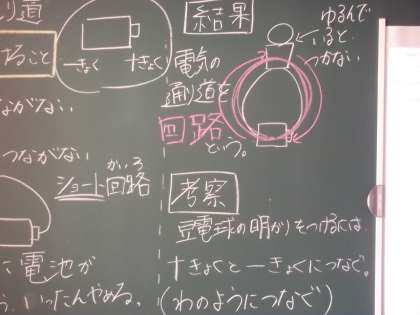 り道
ること
ーきょく
+きょく
ながない
つながない
がいろ
ショート回路
電池が
いったんやめる。
結果
電気の
通り道を
回路という。
ゆるんで
いると
つかない
考察
豆電球の明かりをつけるには
+きょくとーきょくにつなぐ。
(わのようにつなぐ)